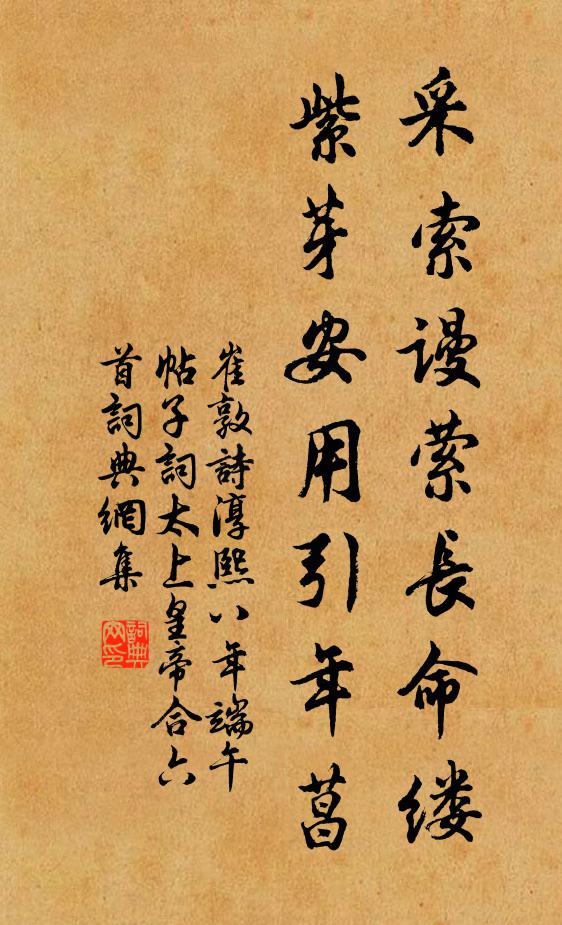 采索谩萦長命缕
紫芽安用引年菖
崔敦詩淳熙八年端午
帖子詞太上皇帝合六
首詞典網集
詞典
网印